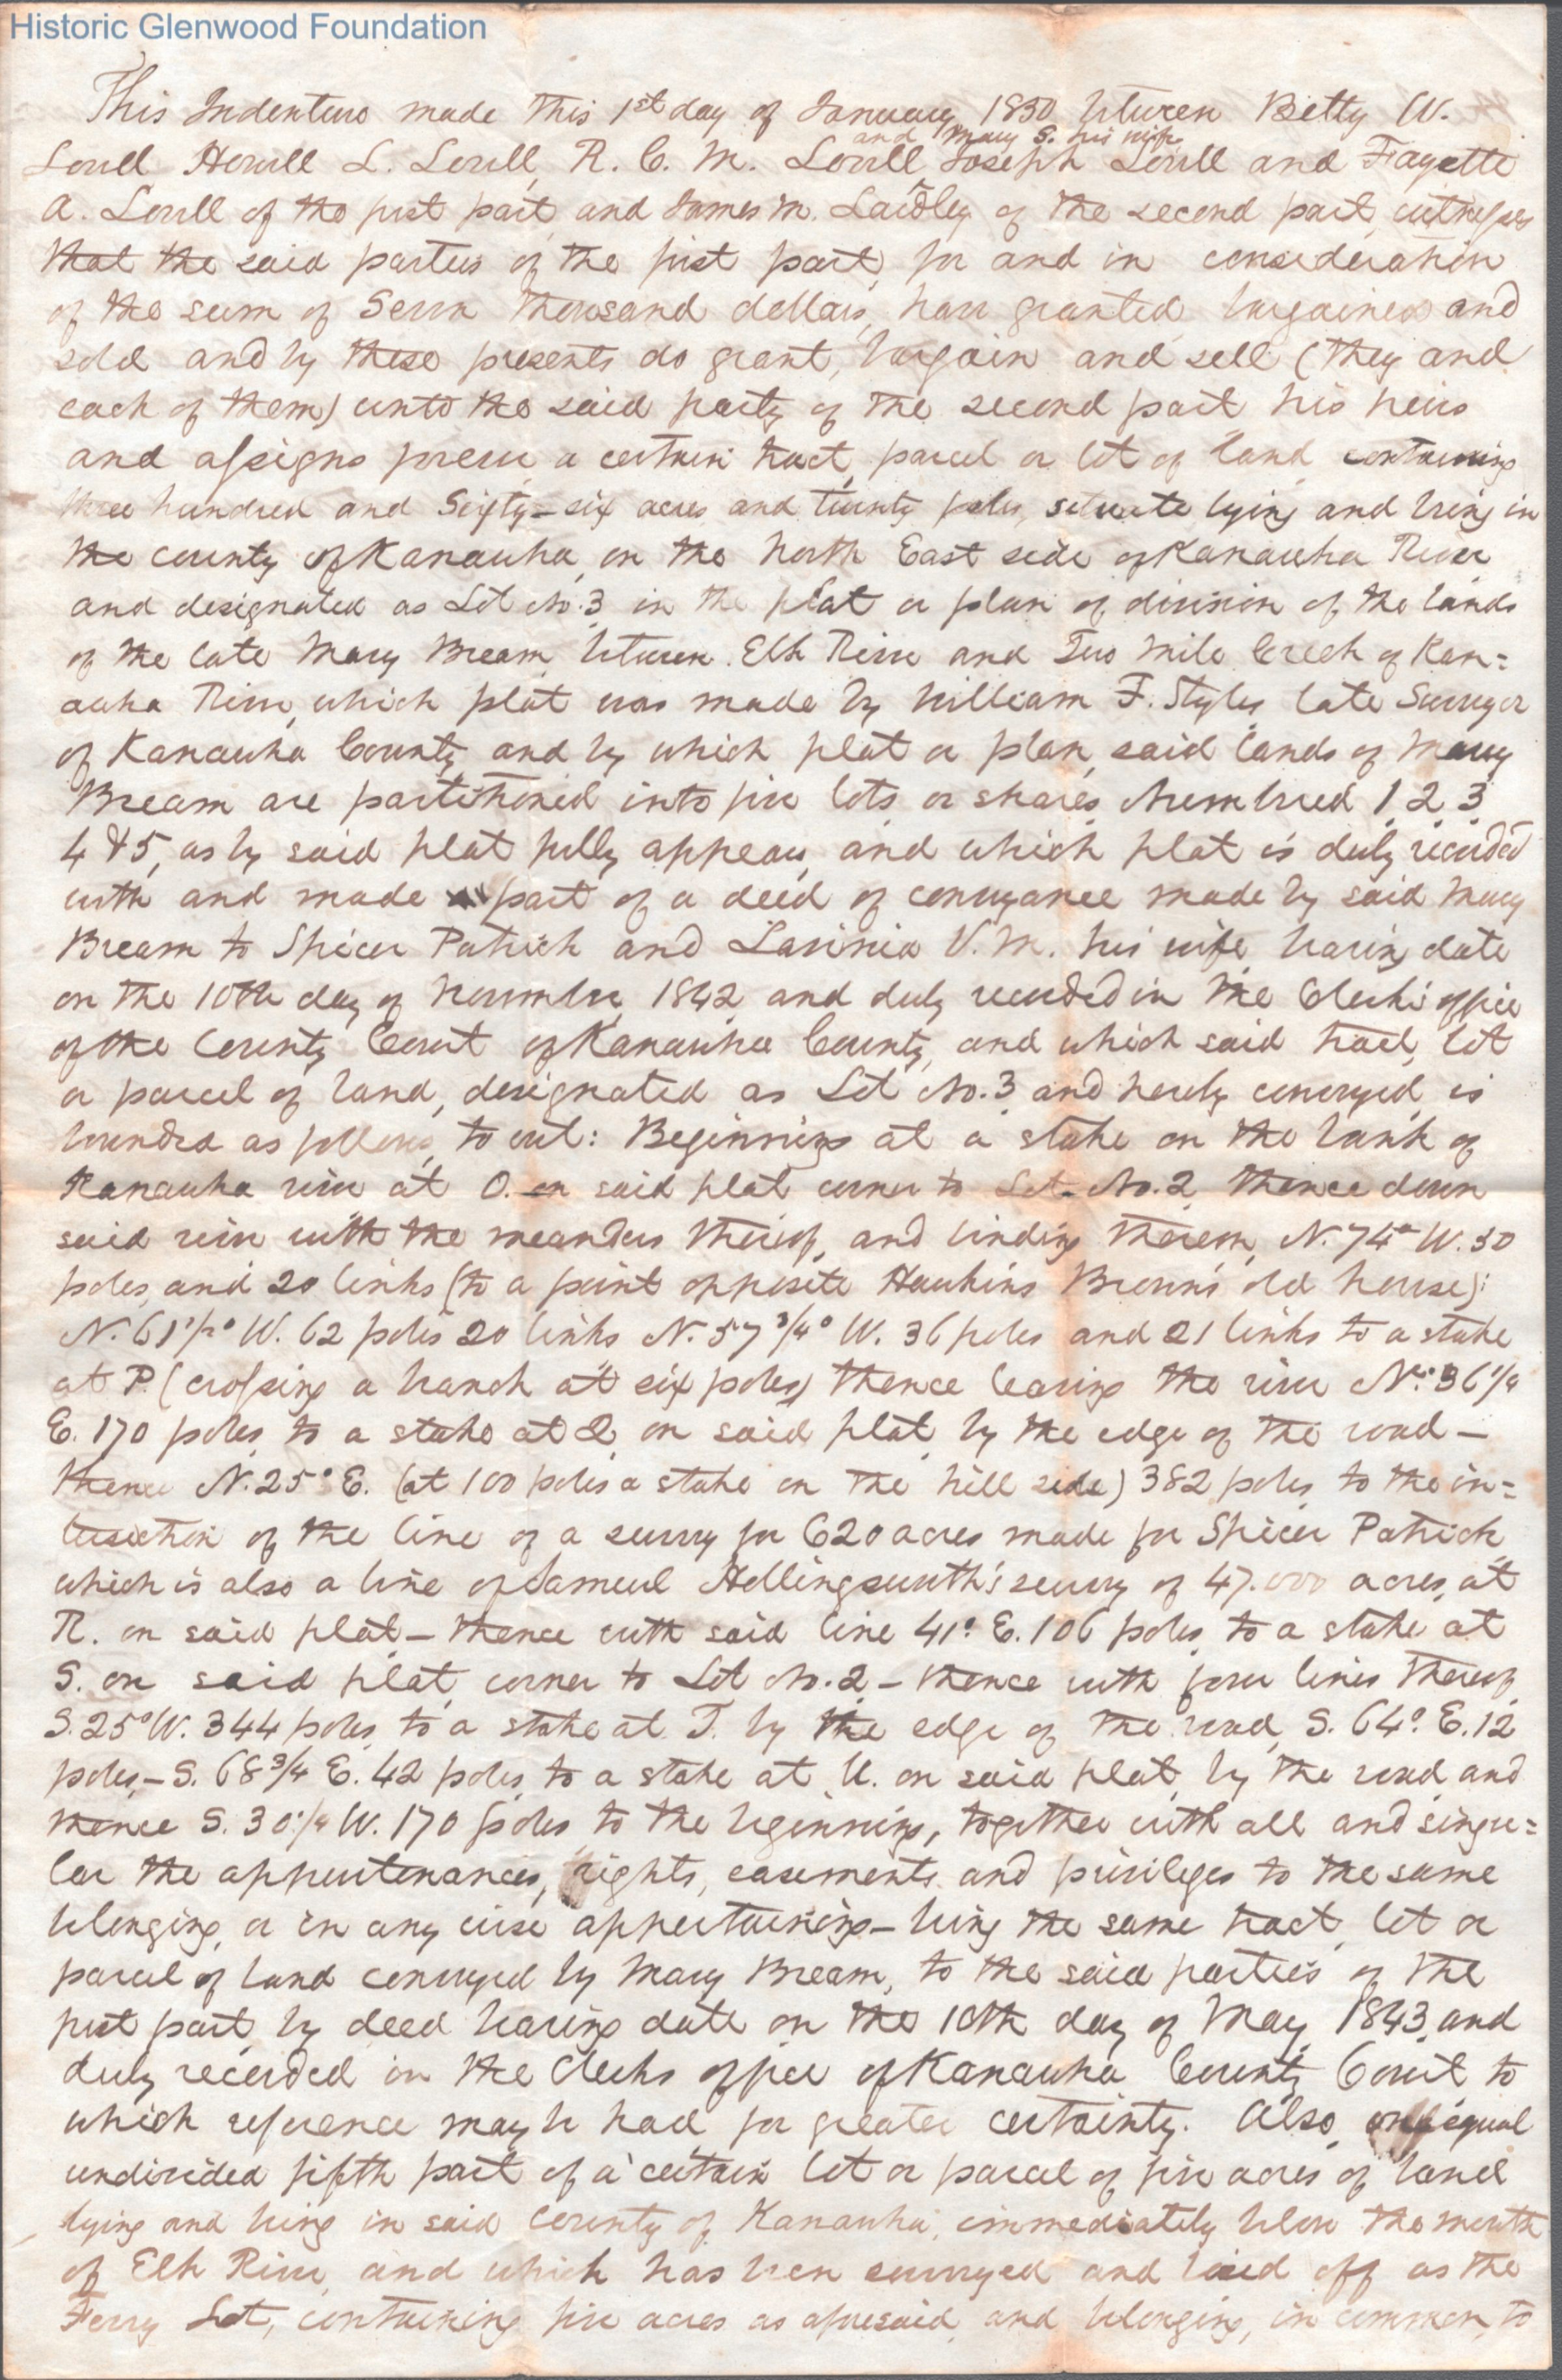 Historic Glenwood Foundation
This Indenture made this 1st day of January 1850 between Betty W.
and Mary S. his wife
Lovell Howell L. Lovell, R. C. M. Lovell Joseph Lovell and Fayette
A. Lovell of the first part, and James M. Laidley of the second part, witnesses
that the said parties of the first part, for and in consideration
of the sum of Seven thousand dollars, have granted bargained and
sold and by these presents do grant, bargain and sell (they and
each of them) unto the said party of the second part his heirs
and assigns forever a certain tract, parcel or lot of land containing
three hundred and Sixty-six acres and twenty poles, situate lying and being in
the county of Kanawha, on the North East side of Kanawha River
and designated as Lot No. 3 in the plat or plan of division of the lands
of the late Mary Bream between Elk River and Two Mile Creek of Kan=
awha River, which plat was made by William F. Styles late Surveyor
of Kanawha County and by which plat or plan, said lands of Mary
Bream are partitioned into five lots or shares Numbered 1, 2, 3
4 & 5, as by said plat fully appears, and which plat is duly recorded
with and made part of a deed of conveyance made by said Mary
Bream to Spicer Patrick and Lavinia V. M. his wife, bearing date
on the 10th day of November 1842 and duly recorded in the Clerk's office
of the County Court of Kanawha County, and which said tract, lot
or parcel of land, designated as Lot No. 3 and hereby conveyed, is
bounded as follows, to wit: Beginning at a stake on the bank of
Kanawha river at O. on said plat corner to Lot No. 2 thence down
said river with the meanders thereof, and binding thereon, N. 74° W. 50
poles, and 20 links (to a point opposite Hawkins Brown's old house):
N. 61 1/2° W. 62 poles 20 links N. 57 3/4° W. 36 poles and 21 links to a stake
at P. (crossing a branch at six poles) thence leaving the river N. 36 1/4
E. 170 poles, to a stake at Q on said plat, by the edge of the road –
thence N. 25° E. (at 100 poles a stake on the hill side) 382 poles, to the in=
tersection of the line of a survey for 620 acres made for Spicer Patrick
which is also a line of Samuel Hollingsworth's survey of 47.000 acres, at
R. on said plat – thence with said line 41° E. 106 poles, to a stake at
S. on said plat, corner to Lot No. 2 – thence with four lines thereof
S. 25° W. 344 poles, to a stake at T. by the edge of the road, S. 64° E. 12
poles, – S. 68 3/4 E. 42 poles, to a stake at U. on said plat, by the road, and
thence S. 30 1/4 W. 170 poles to the beginning, together with all and singu=
lar the appurtenances, rights, easements and privileges to the same
belonging, or in any wise appertaining – being the same tract, lot or
parcel of land conveyed by Mary Bream, to the said parties of the
first part, by deed bearing date on the 10th day of May 1843, and
duly recorded in the Clerks office of Kanawha County Court to
which reference may be had for greater certainty. Also, one equal
undivided fifth part of a certain lot or parcel of five acres of land
lying and being in said county of Kanawha, immediately below the mouth
of Elk River, and which has been surveyed and laid off as the
Ferry Lot, containing five acres as aforesaid, and belonging, in common, to